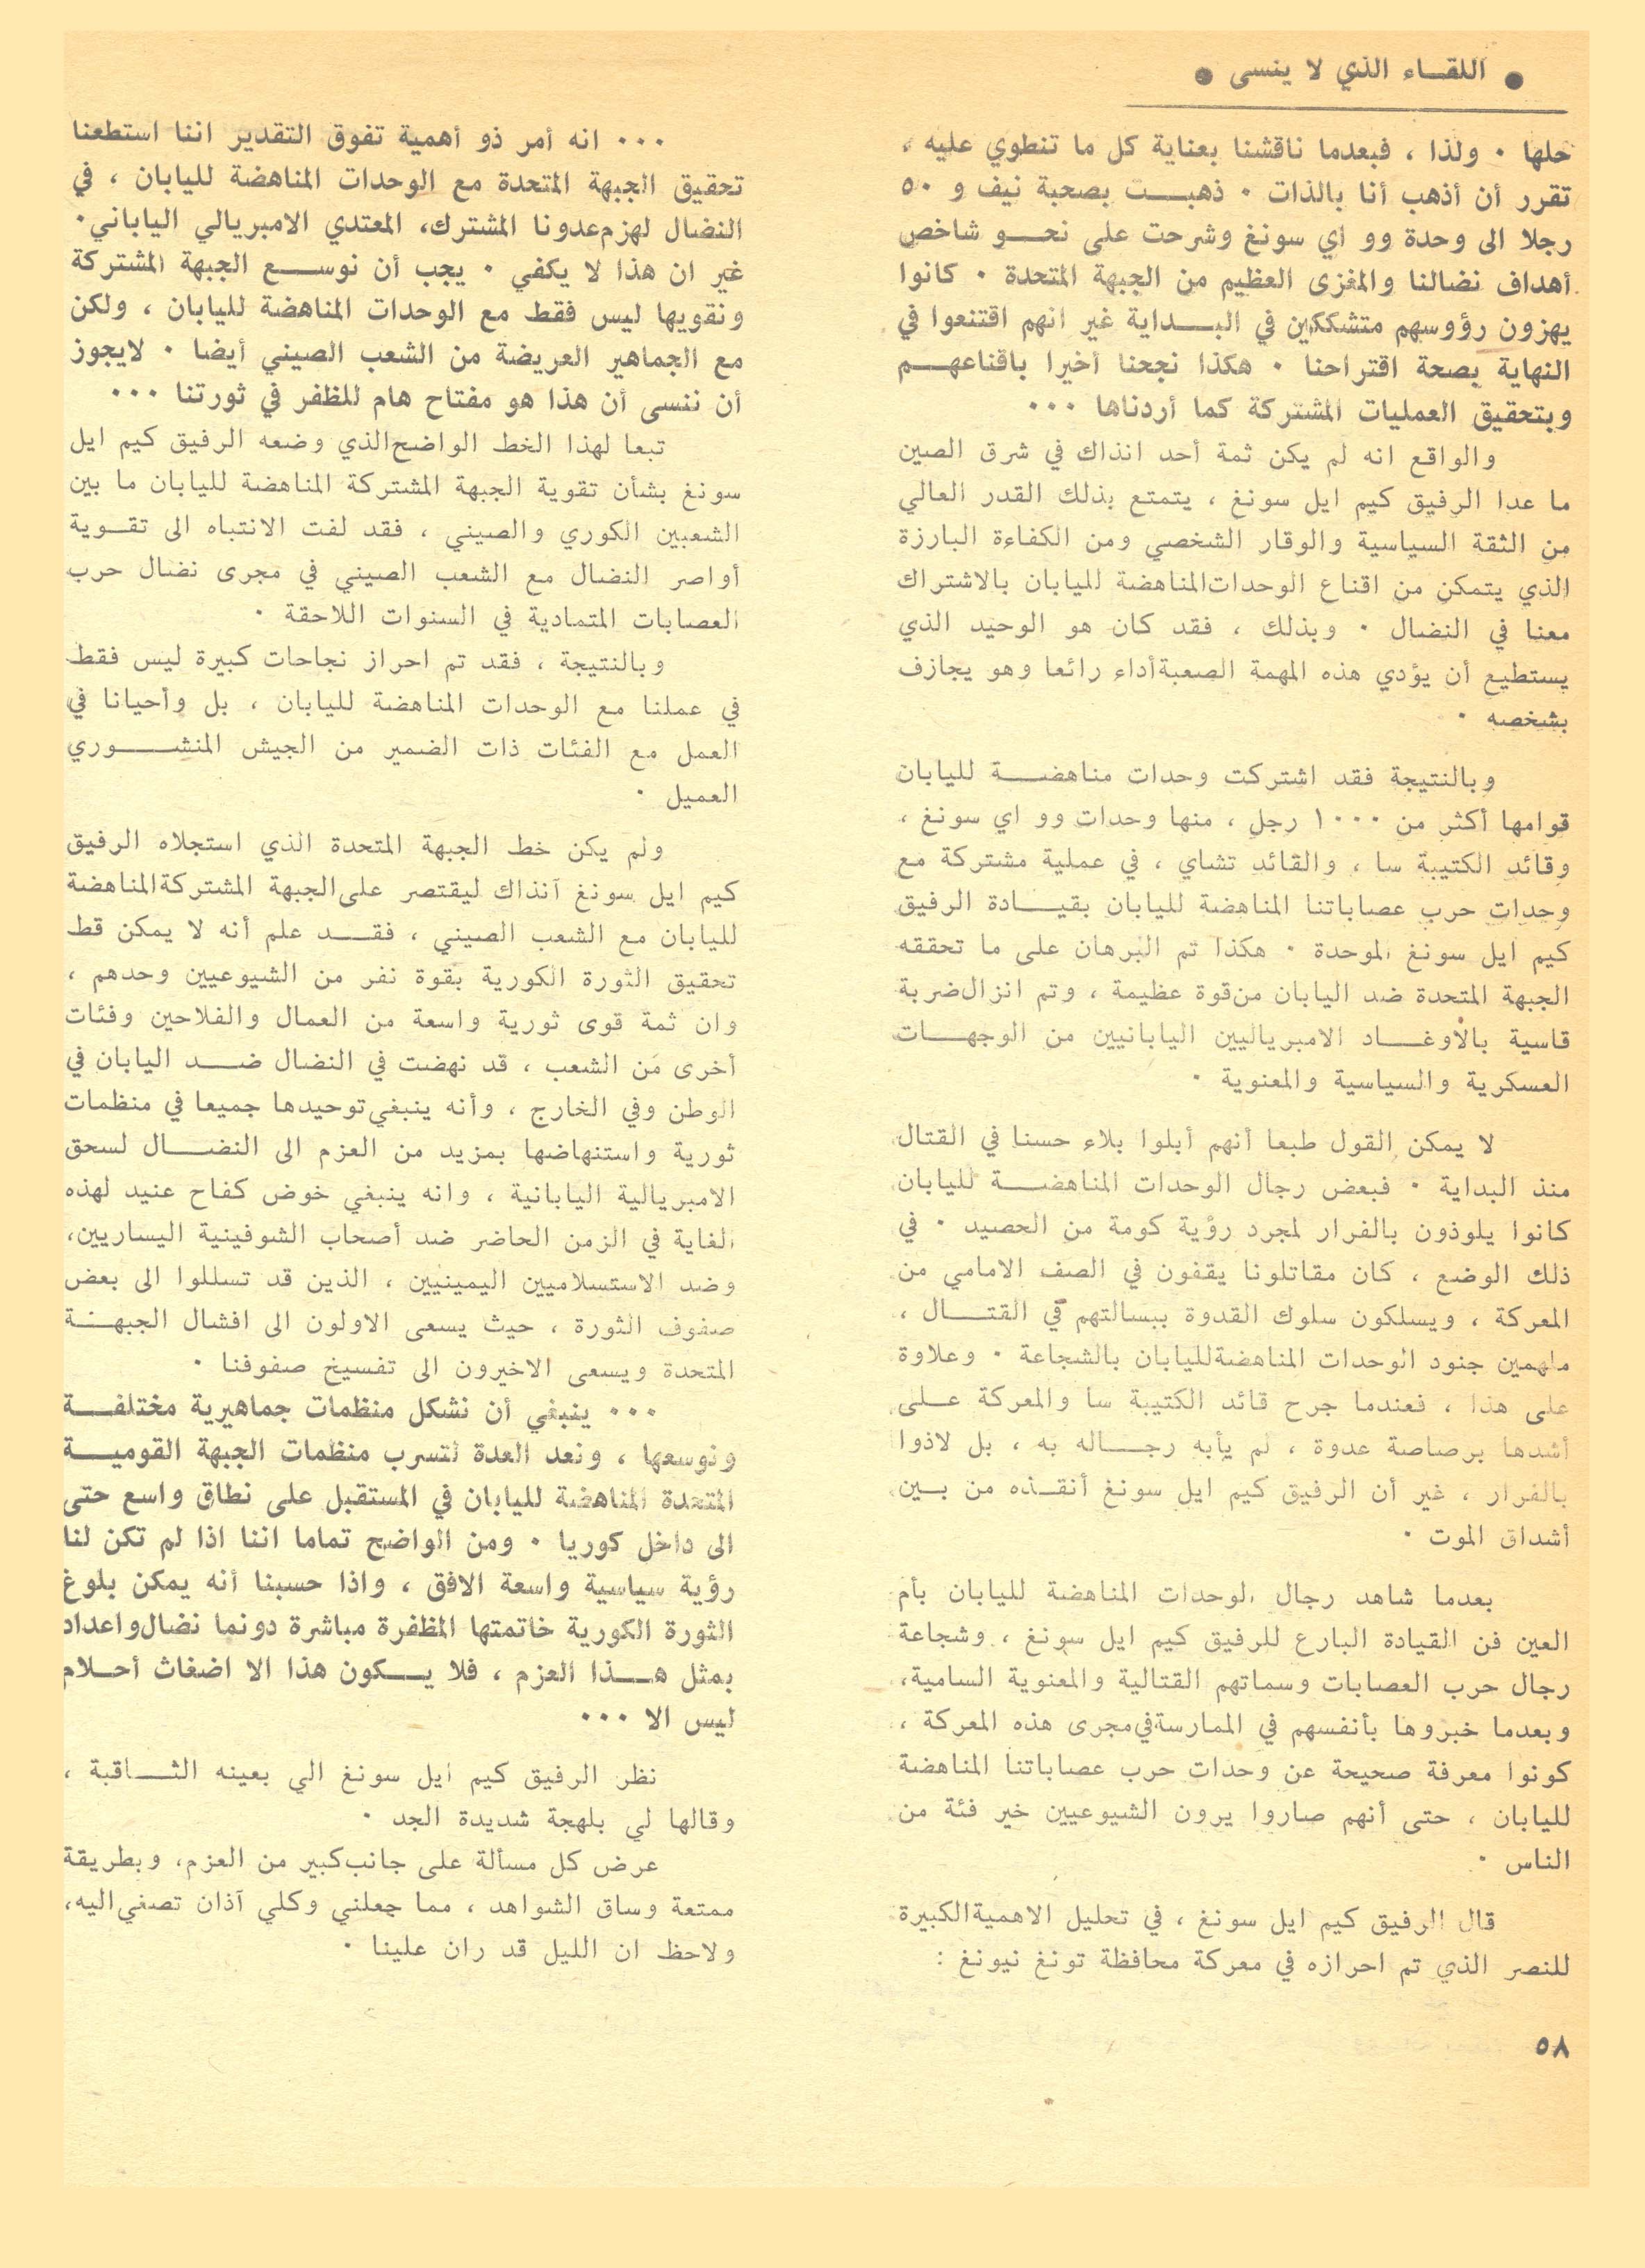 ● اللقاء الذي لا ينسى ●
حلها ٠ ولذا ، فبعدما ناقشنا بعناية كل ما تنطوي عليه ،
تقرر أن أذهب أنا بالذات ٠ ذهبت بصحبة نيف و ٥٠
رجلا الى وحدة وو اي سونغ وشرحت على نحو شاخص
أهداف نضالنا والمغزى العظيم من الجبهة المتحدة ٠ كانوا
يهزون رؤوسهم متشككين في البداية غير انهم اقتنعوا في
النهاية بصحة اقتراحنا ٠ هكذا نجحنا أخيرا باقناعهم
وبتحقيق العمليات المشتركة كما أردناها ٠٠٠
والواقع انه لم يكن ثمة أحد انذاك في شرق الصين
ما عدا الرفيق كيم ايل سونغ ، يتمتع بذلك القدر العالي
من الثقة السياسية والوقار الشخصي ومن الكفاءة البارزة
الذي يتمكن من اقناع الوحدات المناهضة لليابان بالاشتراك
معنا في النضال ٠ وبذلك ، فقد كان هو الوحيد الذي
يستطيع أن يؤدي هذه المهمة الصعبة أداء رائعا وهو يجازف
بشخصه ٠
وبالنتيجة فقد اشتركت وحدات مناهضة لليابان
قوامها أكثر من ١٠٠٠ رجل ، منها وحدات وو اي سونغ ،
وقائد الكتيبة سا ، والقائد تشاي ، في عملية مشتركة مع
وحدات حرب عصاباتنا المناهضة لليابان بقيادة الرفيق
كيم ايل سونغ الموحدة ٠ هكذا تم البرهان على ما تحققه
الجبهة المتحدة ضد اليابان من قوة عظيمة ، وتم انزال ضربة
قاسية بالأوغاد الامبرياليين اليابانيين من الوجهات
العسكرية والسياسية والمعنوية ٠
لا يمكن القول طبعا أنهم أبلوا بلاء حسنا في القتال
منذ البداية ٠ فبعض رجال الوحدات المناهضة لليابان
كانوا يلوذون بالفرار لمجرد رؤية كومة من الحصيد ٠ في
ذلك الوضع ، كان مقاتلونا يقفون في الصف الامامي من
المعركة ، ويسلكون سلوك القدوة ببسالتهم في القتال ،
ملهمين جنود الوحدات المناهضة لليابان بالشجاعة ٠ وعلاوة
على هذا ، فعندما جرح قائد الكتيبة سا والمعركة على
أشدها برصاصة عدوة ، لم يأبه رجاله به ، بل لاذوا
بالفرار ، غير أن الرفيق كيم ايل سونغ أنقذه من بين
أشداق الموت ٠
بعدما شاهد رجال الوحدات المناهضة لليابان بأم
العين فن القيادة البارع للرفيق كيم ايل سونغ ، وشجاعة
رجال حرب العصابات وسماتهم القتالية والمعنوية السامية،
وبعدما خبروها بأنفسهم في الممارسة في مجرى هذه المعركة ،
كونوا معرفة صحيحة عن وحدات حرب عصاباتنا المناهضة
لليابان ، حتى أنهم صاروا يرون الشيوعيين خير فئة من
الناس ٠
قال الرفيق كيم ايل سونغ ، في تحليل الاهمية الكبيرة
للنصر الذي تم احرازه في معركة محافظة تونغ نيونغ :
٠٠٠ انه أمر ذو أهمية تفوق التقدير اننا استطعنا
تحقيق الجبهة المتحدة مع الوحدات المناهضة لليابان ، في
النضال لهزم عدونا المشترك، المعتدي الامبريالي الياباني٠
غير ان هذا لا يكفي ٠ يجب أن نوسع الجبهة المشتركة
ونقويها ليس فقط مع الوحدات المناهضة لليابان ، ولكن
مع الجماهير العريضة من الشعب الصيني أيضا ٠ لايجوز
أن ننسى أن هذا هو مفتاح هام للظفر في ثورتنا ٠٠٠
تبعا لهذا الخط الواضح الذي وضعه الرفيق كيم ايل
سونغ بشأن تقوية الجبهة المشتركة المناهضة لليابان ما بين
الشعبين الكوري والصيني ، فقد لفت الانتباه الى تقوية
أواصر النضال مع الشعب الصيني في مجرى نضال حرب
العصابات المتمادية في السنوات اللاحقة ٠
وبالنتيجة ، فقد تم احراز نجاحات كبيرة ليس فقط
في عملنا مع الوحدات المناهضة لليابان ، بل وأحيانا في
العمل مع الفئات ذات الضمير من الجيش المنشوري
العميل ٠
ولم يكن خط الجبهة المتحدة الذي استجلاه الرفيق
كيم ايل سونغ آنذاك ليقتصر على الجبهة المشتركة المناهضة
لليابان مع الشعب الصيني ، فقد علم أنه لا يمكن قط
تحقيق الثورة الكورية بقوة نفر من الشيوعيين وحدهم ،
وان ثمة قوى ثورية واسعة من العمال والفلاحين وفئات
أخرى من الشعب ، قد نهضت في النضال ضد اليابان في
الوطن وفي الخارج ، وأنه ينبغي توحيدها جميعا في منظمات
ثورية واستنهاضها بمزيد من العزم الى النضال لسحق
الامبريالية اليابانية ، وانه ينبغي خوض كفاح عنيد لهذه
الغاية في الزمن الحاضر ضد أصحاب الشوفينية اليساريين،
وضد الاستسلاميين اليمينيين ، الذين قد تسللوا الى بعض
صفوف الثورة ، حيث يسعى الاولون الى افشال الجبهة
المتحدة ويسعى الاخيرون الى تفسيخ صفوفنا ٠
٠٠٠ ينبغي أن نشكل منظمات جماهيرية مختلفة
ونوسعها ، ونعد العدة لتسرب منظمات الجبهة القومية
المتحدة المناهضة لليابان في المستقبل على نطاق واسع حتى
الى داخل كوريا ٠ ومن الواضح تماما اننا اذا لم تكن لنا
رؤية سياسية واسعة الافق ، واذا حسبنا أنه يمكن بلوغ
الثورة الكورية خاتمتها المظفرة مباشرة دونما نضال واعداد
بمثل هذا العزم ، فلا يكون هذا الا اضغاث أحلام
ليس الا ٠٠٠
نظر الرفيق كيم ايل سونغ الي بعينه الثاقبة ،
وقالها لي بلهجة شديدة الجد ٠
عرض كل مسألة على جانب كبير من العزم، وبطريقة
ممتعة وساق الشواهد ، مما جعلني وكلي آذان تصغي اليه،
ولاحظ ان الليل قد ران علينا ٠
٥٨